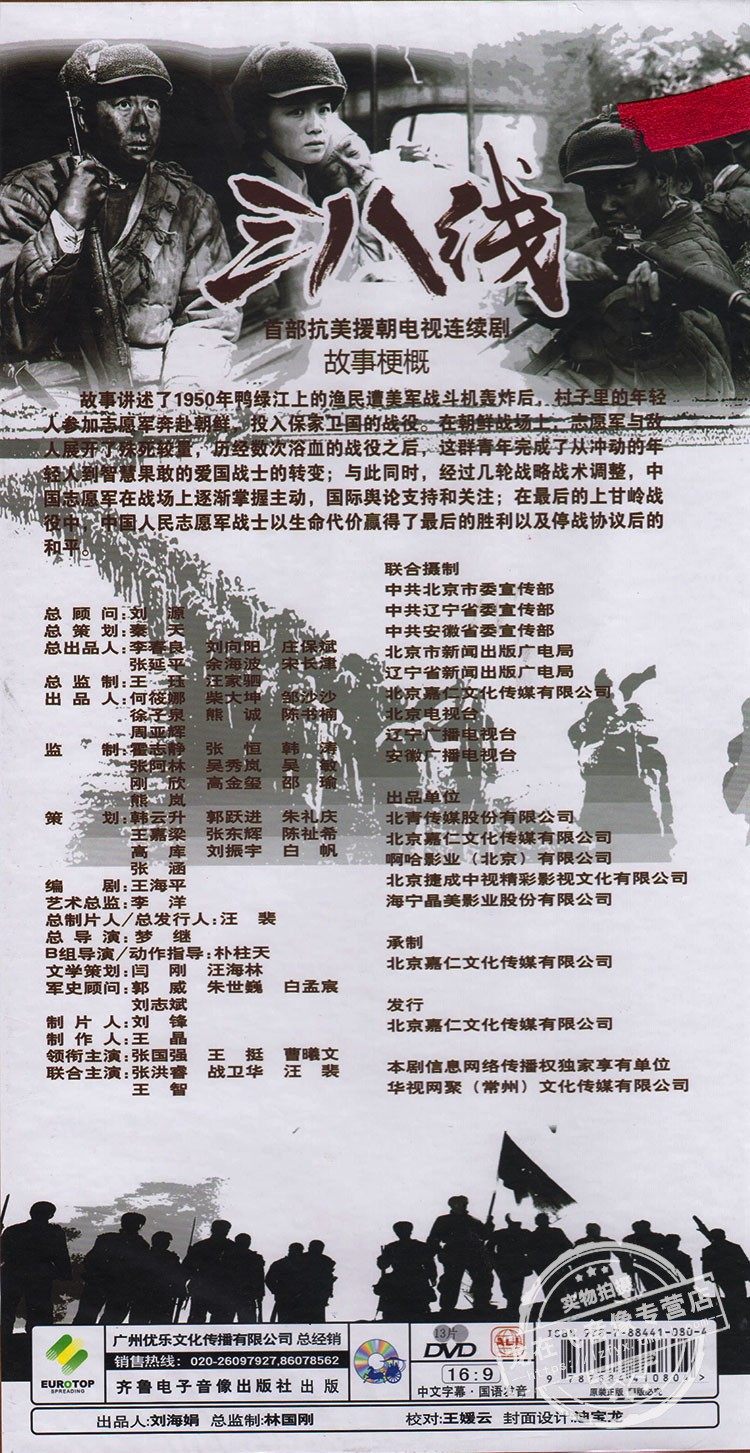 三八线
首部抗美援朝电视连续剧
故事梗概
故事讲述了1950年鸭绿江上的渔民遭美军战斗机轰炸后，村子里的年轻
人参加志愿军奔赴朝鲜，投入保家卫国的战役。在朝鲜战场上，志愿军与敌
人展开了殊死较量，历经数次浴血的战役之后，这群青年完成了从冲动的年
轻人到智慧果敢的爱国战士的转变；与此同时，经过几轮战略战术调整，中
国志愿军在战场上逐渐掌握主动，国际舆论支持和关注；在最后的上甘岭战
役中，中国人民志愿军战士以生命代价赢得了最后的胜利以及停战协议后的
和平。
总顾问:刘源
总策划:秦天
总出品人:李春良 刘向阳 庄保斌
张延平 余海波 宋长津
总监制:王珏 汪家驷
出品人:何筱娜 柴大坤 邹沙沙
徐子泉 熊诚 陈书楠
周亚辉
监制:霍志静 张恒 韩涛
张阿林 吴秀岚 吴敏
刚欣 高金玺 邵瑜
熊岚
策划:韩云升 郭跃进 朱礼庆
王嘉梁 张东辉 陈祉希
高库 刘振宇 白帆
张涵
编剧:王海平
艺术总监:李洋
总制片人/总发行人:汪裴
总导演:梦继
B组导演/动作指导:朴柱天
文学策划:闫刚 汪海林
军史顾问:郭威 朱世巍 白孟宸
刘志斌
制片人:刘锋
制作人:王晶
领衔主演:张国强 王挺 曹曦文
联合主演:张洪睿 战卫华 汪裴
王智
联合摄制
中共北京市委宣传部
中共辽宁省委宣传部
中共安徽省委宣传部
北京市新闻出版广电局
辽宁省新闻出版广电局
北京嘉仁文化传媒有限公司
北京电视台
辽宁广播电视台
安徽广播电视台
出品单位
北青传媒股份有限公司
北京嘉仁文化传媒有限公司
啊哈影业（北京）有限公司
北京捷成中视精彩影视文化有限公司
海宁晶美影业股份有限公司
承制
北京嘉仁文化传媒有限公司
发行
北京嘉仁文化传媒有限公司
本剧信息网络传播权独家享有单位
华视网聚（常州）文化传媒有限公司
EUROTOP
SPREADING
广州优乐文化传播有限公司 总经销
销售热线：020-26097927,86078562
齐鲁电子音像出版社 出版
13片
DVD
16:9
中文字幕·国语发音
ALL
原装正版
实物拍摄
音像专营店
出品人:刘海娟 总监制:林国刚
校对:王媛云 封面设计:迪宝龙